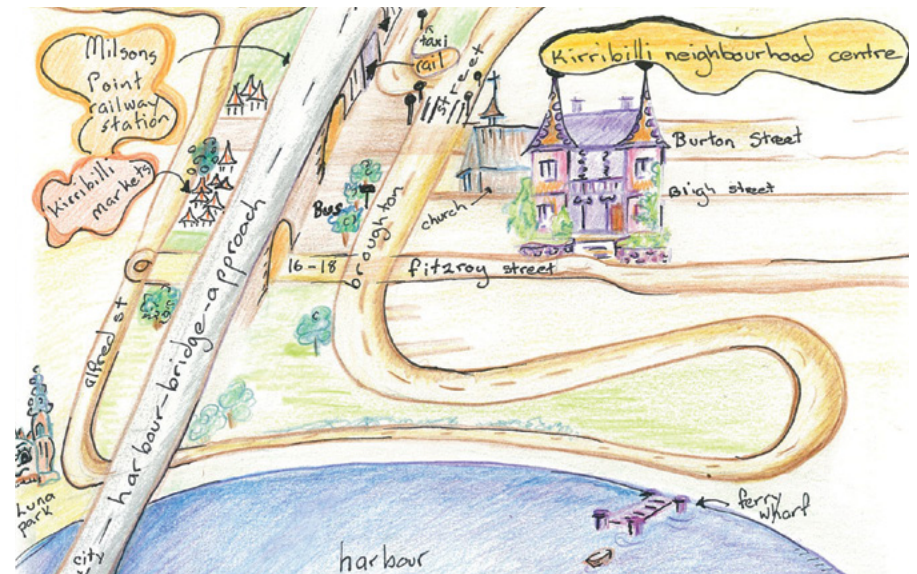 Milsons
Point
railway
station
Kirribilli
markets
taxi
rail
street
Kirribilli neighbourhood centre
Burton Street
Bligh street
church
Bus
broughton
16-18
fitzroy street
alfred st
harbour-bridge-approach
Luna
park
city
harbour
ferry
wharf